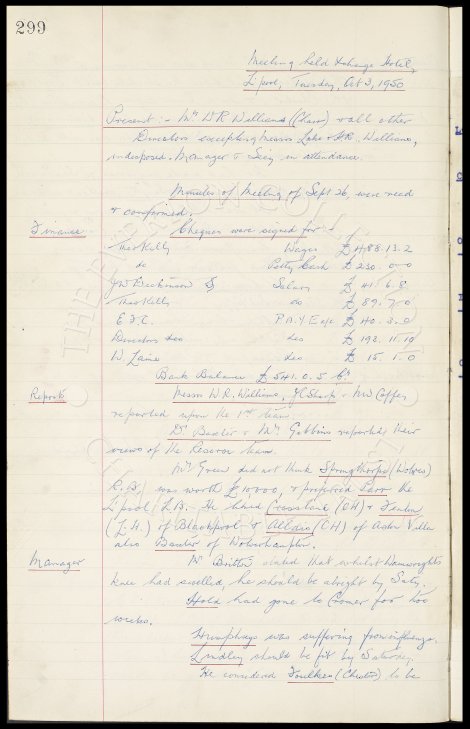 299
Meeting held Xchange Hotel,
L'pool, Tuesday, Oct 3, 1950
Present :- Mr W.R. Williams (Chair) & all other
Directors excepting Messrs Lake & R. Williams,
indisposed. Manager & Secy in attendance.
Minutes of Meeting of Sept 26, were read
& confirmed.
Finance Cheques were signed for :-
Theo Kelly Wages £ 488. 13. 2
do Petty Cash £ 250. 0. 0
Salary £ 41. 6. 8
Theo Kelly do £ 89. 7. 0
E.F.C. P.A.Y.E a/c £ 40. 3. 0
Directors do £ 198. 11. 10
W. do £ 15. 1. 0
Bank Balance £ 541. 0. 5
Reports Messrs W.R. Williams, & Mr Coffey
reported upon the 1st team.
Dr. Baxter & Mr. Gibbins reported their
views of the Reserve team.
Mr Green did not think Springthorpe (Wolves)
was worth £10000, & preferred the
L'pool L.B. He liked Crossland (CH) & Fenton
(L.H.) of Blackpool & (CH) of Aston Villa
also Baxter of Wolverhampton.
Manager Mr Britton stated that whilst Wainwright's
knee had swelled, he should be alright by Saty.
Hold had gone to Cromer for two
weeks.
Humphreys was suffering from influenza.
Lindley should be fit by Saturday.
He considered Foulkes (Chester) to be